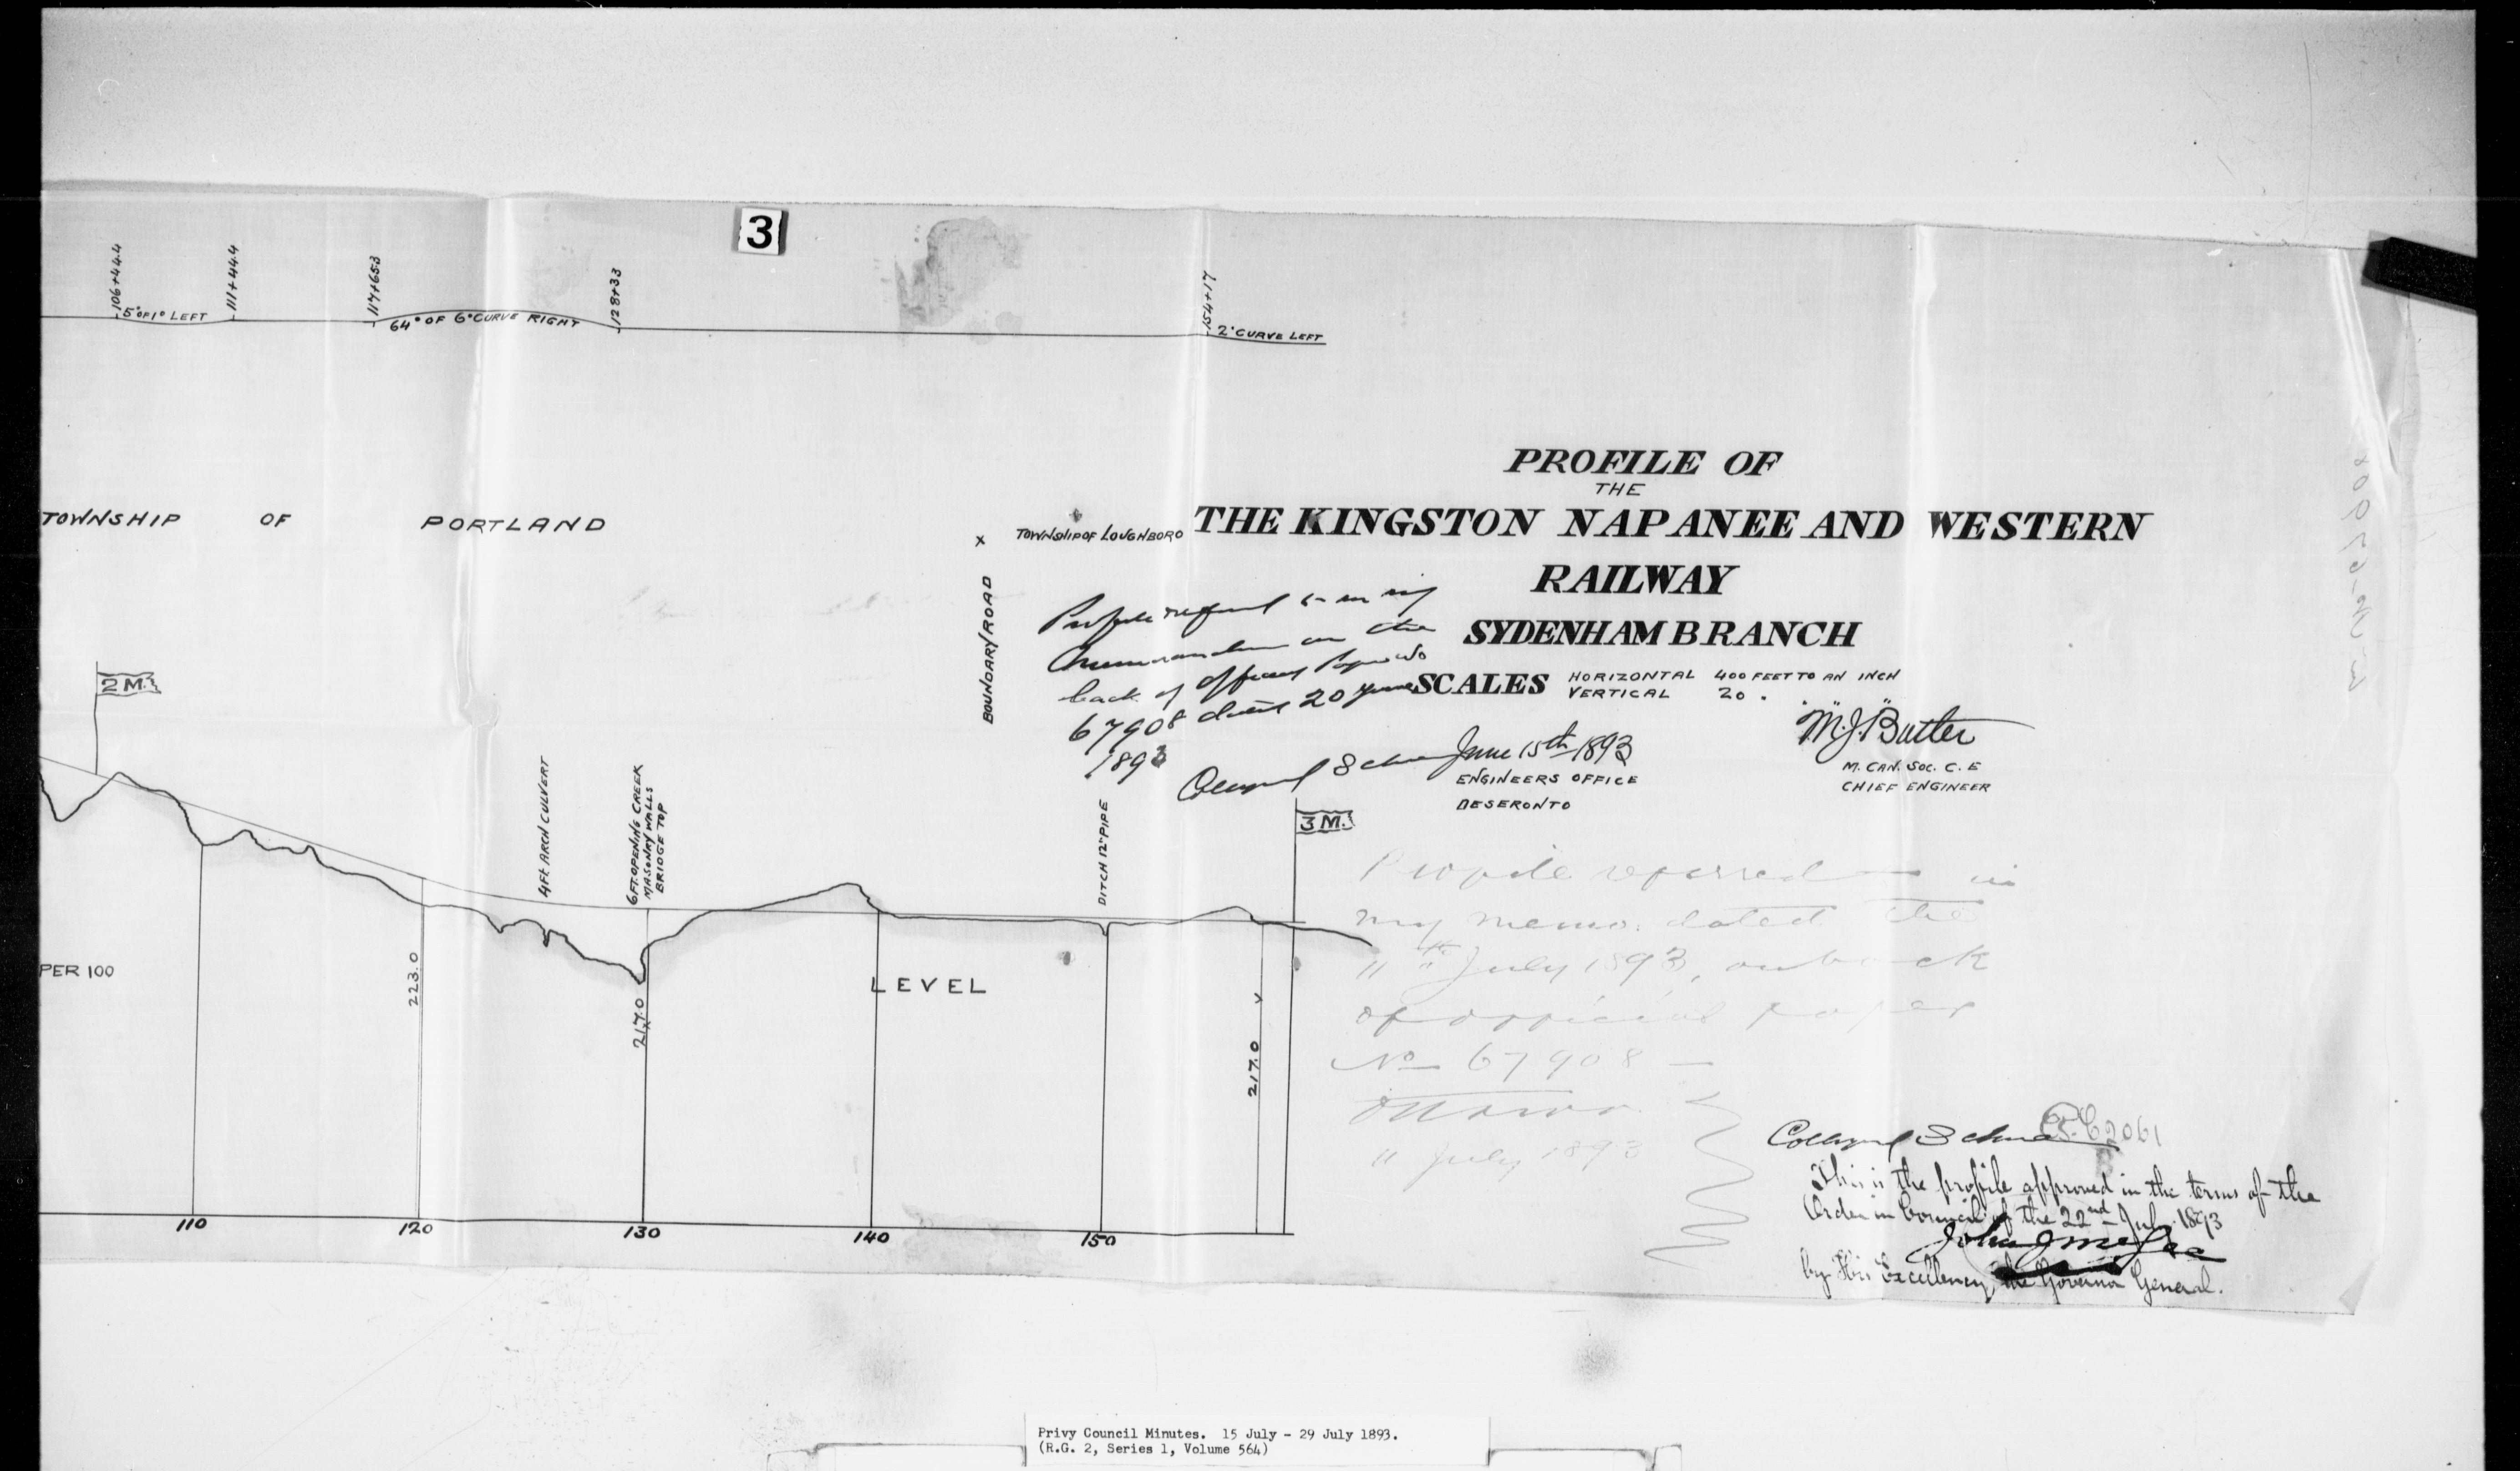 3
106+44.4
111+44.4
117+65.3
128+33
154+17
5° OF 1° LEFT
64° OF 6° CURVE RIGHT
2° CURVE LEFT
PROFILE OF
THE
THE KINGSTON NAPANEE AND WESTERN
RAILWAY
SYDENHAM BRANCH
SCALES HORIZONTAL 400 FEET TO AN INCH
VERTICAL 20 " "
TOWNSHIP OF PORTLAND
X TOWNSHIP OF LOUGHBORO
BOUNDARY ROAD
Profile referred to in my
memorandum on the
back of official Paper No
67908 dated 20 June
1893
Collingwood Schreiber
June 15th 1893
ENGINEERS OFFICE
DESERONTO
M.J. Butler
M. CAN. SOC. C. E
CHIEF ENGINEER
2 M.
3 M.
4 FT ARCH CULVERT
6 FT. OPENING CREEK
MASONRY WALLS
BRIDGE TOP
DITCH 12" PIPE
PER 100
223.0
217.0
LEVEL
217.0
110
120
130
140
150
Profile referred to in
my memo. dated the
11th July 1893, on back
of official paper
No 67908 —
Ottawa
11 July 1893
Collingwood Schreiber
P.C. 2061
This is the profile approved in the terms of the
Order in Council of the 22nd July 1893
John J McGee
by His Excellency the Governor General.
Privy Council Minutes. 15 July - 29 July 1893.
(R.G. 2, Series 1, Volume 564)